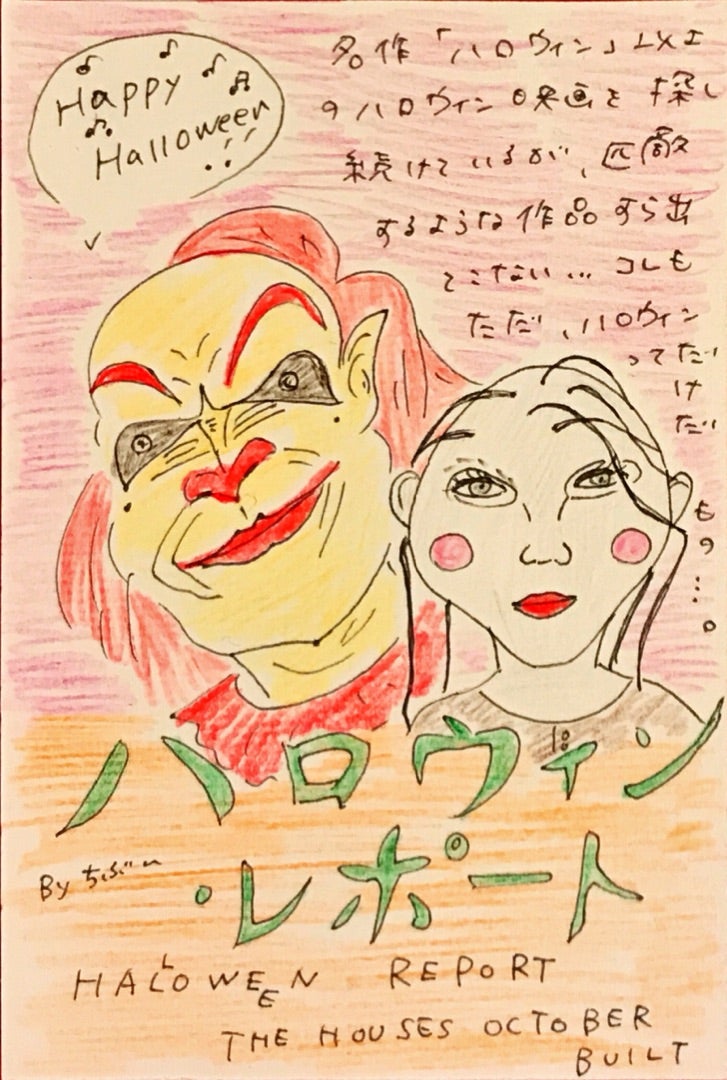 Happy
Halloween
名作「ハロウィン」以エ
のハロウィン映画を探し
続けているが、匹敵
するような作品すら出
てこない…コレも
ただ、ハロウィン
ってだ
け
だ
もの…。
ハロウィン
・レポート
By ちぶー
HALLOWEEN REPORT
THE HOUSES OCTOBER
BUILT